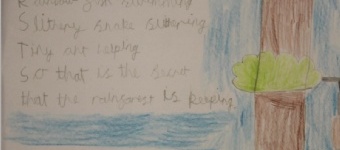 Rainbow fish swimming
Slithery snake slithering
Tiny ant helping
So that is the secret
that the rainforest is keeping